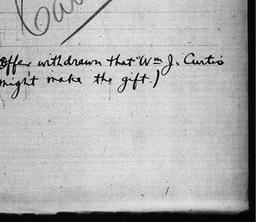 Offer withdrawn that Wm J. Curtis
might make the gift.)